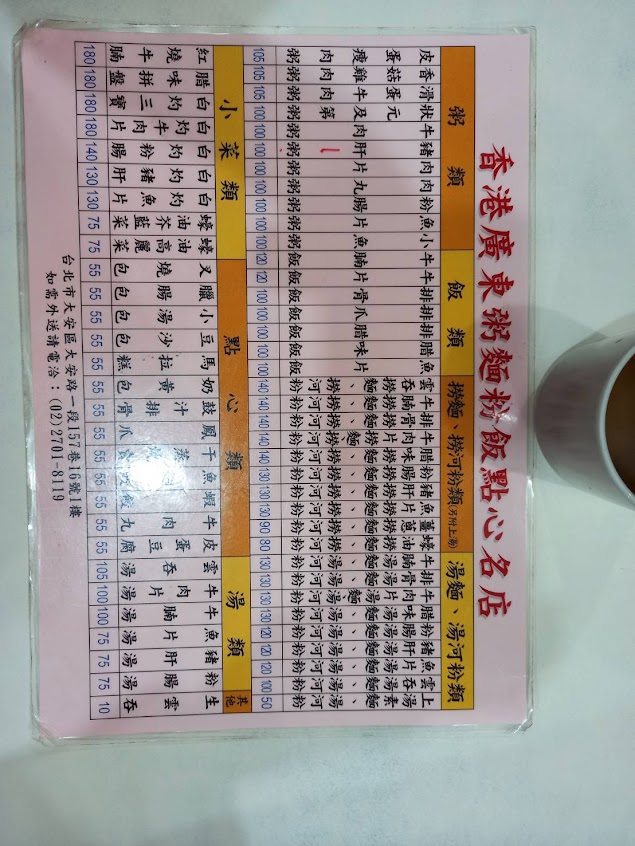 香港廣東粥麵粉飯點心名店
粥類
皮蛋瘦肉粥 105
香菇雞肉粥 105
滑蛋牛肉粥 105
狀元及第粥
牛肉粥 100
豬肝粥 100
肉片粥 100
肉丸粥 100
粉腸粥 100
飯類
撈麵、撈河粉類(另附上湯)
雲吞撈麵、撈河粉 140
牛腩撈麵、撈河粉 140
排骨撈麵、撈河粉 140
牛肉片撈麵、撈河粉 140
腊味撈麵、撈河粉
粉腸撈麵、撈河粉 130
豬肝撈麵、撈河粉 130
魚片撈麵、撈河粉 130
薑蔥撈麵、撈河粉 90
蠔油撈麵、撈河粉 80
湯麵、湯河粉類
牛腩湯麵、湯河粉 130
排骨湯麵、湯河粉 130
牛肉片湯麵、湯河粉 130
腊味湯麵、湯河粉
粉腸湯麵、湯河粉 120
豬肝湯麵、湯河粉 120
魚片湯麵、湯河粉 120
雲吞湯麵、湯河粉 100
上湯素麵、河粉 50
小菜類
紅燒牛腩 180
腊味拼盤 180
白灼三寶 180
白灼牛肉片 180
白灼粉腸 140
白灼豬肝 130
白灼魚片 130
蠔油芥藍菜 75
蠔油高麗菜 75
點心類
叉燒包 55
臘腸包 55
小湯包 55
豆沙包 55
馬拉糕 55
奶黃包 55
豉汁排骨 55
鳳爪 55
干蒸 55
魚 55
蝦餃 55
牛肉丸 55
皮蛋豆腐 55
湯類
雲吞湯 105
牛肉片湯 100
牛腩湯 100
魚片湯 75
豬肝湯 75
粉腸湯 75
其他
生雲吞 10
台北市大安區大安路一段157巷16號1樓
如需外送請電洽：(02)2701-8119